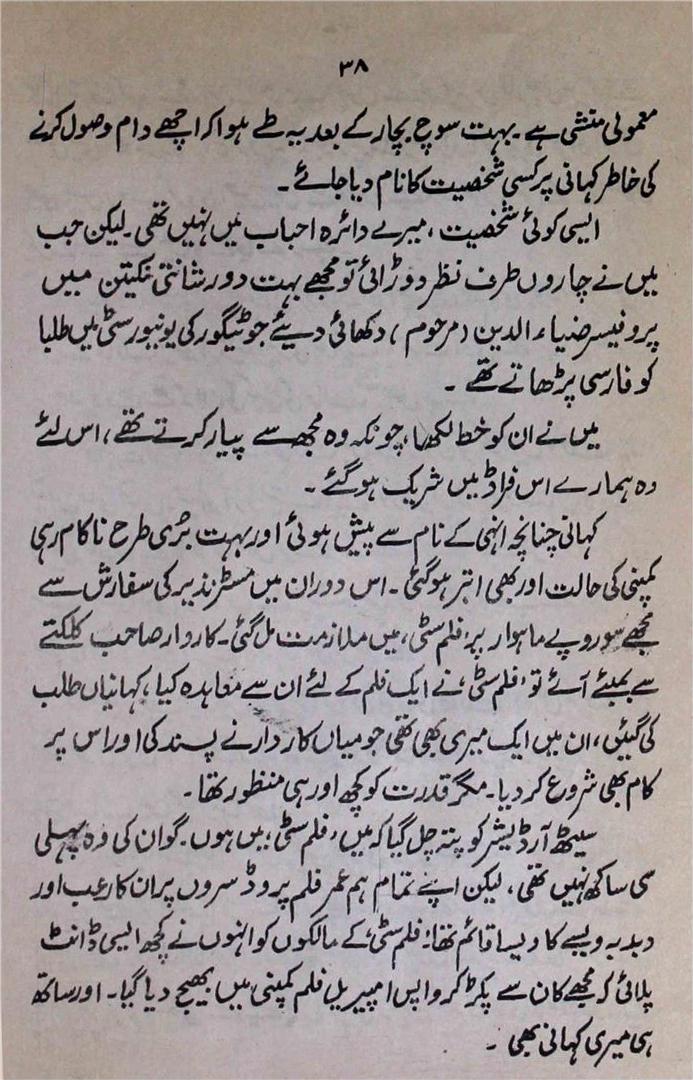 ۳۸
معمولی منشی ہے۔ بہت سوچ بچار کے بعد یہ طے ہوا کہ اچھے دام وصول کرنے
کی خاطر کہانی پر کسی شخصیت کا نام دیا جائے۔
ایسی کوئی شخصیت، میرے دائرہ احباب میں نہیں تھی۔ لیکن جب
میں نے چاروں طرف نظر دوڑائی تو مجھے بہت دور شانتی نکیتن میں
پروفیسر ضیاء الدین (مرحوم) دکھائی دیئے جو ٹیگور کی یونیورسٹی میں طلبا
کو فارسی پڑھاتے تھے۔
میں نے ان کو خط لکھا، چونکہ وہ مجھ سے پیار کرتے تھے، اس لئے
وہ ہمارے اس فراڈ میں شریک ہو گئے۔
کہانی چنانچہ انہی کے نام سے پیش ہوئی اور بہت بُری طرح ناکام رہی
کمپنی کی حالت اور بھی ابتر ہو گئی۔ اس دوران میں مسٹر نذیر کی سفارش سے
مجھے سو روپے ماہوار پر ’فلم سٹی‘ میں ملازمت مل گئی۔ کاردار صاحب کلکتے
سے بمبئے آئے تو ’فلم سٹی‘ نے ایک فلم کے لئے ان سے معاہدہ کیا، کہانیاں طلب
کی گئیں، ان میں ایک میری بھی تھی جو میاں کاردار نے پسند کی اور اس پر
کام بھی شروع کر دیا۔ مگر قدرت کو کچھ اور ہی منظور تھا۔
سیٹھ آرڈیشر کو پتہ چل گیا کہ میں ’فلم سٹی‘ میں ہوں۔ گو ان کی وہ پہلی
سی ساکھ نہیں تھی، لیکن اپنے تمام ہم عمر فلم پروڈسروں پر ان کا رعب اور
دبدبہ ویسے کا ویسا قائم تھا۔ ’فلم سٹی‘ کے مالکوں کو انہوں نے کچھ ایسی ڈانٹ
پلائی کہ مجھے کان سے پکڑ کر واپس امپیریل فلم کمپنی میں بھیج دیا گیا۔ اور ساتھ
ہی میری کہانی بھی۔